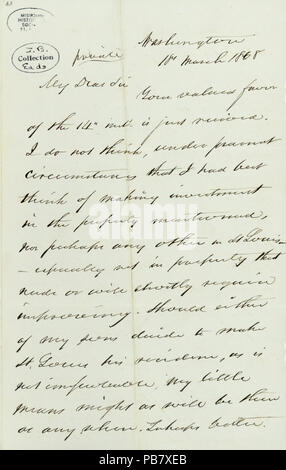 MISSOURI
HISTORICAL
SOC
J. B.
Collection
Eads
private
Washington
18 March 1868
My Dear Sir
Your valued favor
of the 14" inst. is just received.
I do not think, under present
circumstances that I had best
think of making investment
in the property mentioned,
nor perhaps any other in St. Louis
— especially not in property that
needs or will shortly require
improvement. Should either
of my sons decide to make
St. Louis his residence, as is
not improbable, my little
means might as well be there
as any where. Perhaps better.
alamy
Image ID: PB7XEB
www.alamy.com